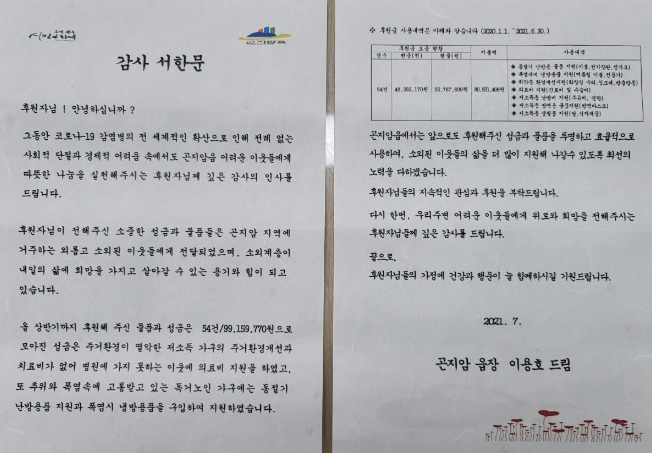 감사 서한문
후원자님! 안녕하십니까?
그동안 코로나-19 감염병의 전 세계적인 확산으로 인해 전례 없는
사회적 단절과 경제적 어려움 속에서도 곤지암읍 어려운 이웃들에게
따뜻한 나눔을 실천해주시는 후원자님께 깊은 감사의 인사를
드립니다.
후원자님이 전해주신 소중한 성금과 물품들은 곤지암 지역에
거주하는 외롭고 소외된 이웃들에게 전달되었으며, 소외계층이
내일의 삶에 희망을 가지고 살아갈 수 있는 용기와 힘이 되고
있습니다.
올 상반기까지 후원해 주신 물품과 성금은 54건/99,159,770원으로
모아진 성금은 주거환경이 열악한 저소득 가구의 주거환경개선과
치료비가 없어 병원에 가지 못하는 이웃에 의료비 지원을 하였고,
또 추위와 폭염속에 고통받고 있는 독거노인 가구에는 동절기
난방용품 지원과 폭염시 냉방용품을 구입하여 지원하였습니다.
※ 후원금 사용내역은 아래와 같습니다 (2020.1.1. ~2021.6.30.)
후원금 모금 현황
건수 현금(원) 현물(원) 지출액 사용내역
54건
곤지암읍에서는 앞으로도 후원해주신 성금과 물품을 투명하고 효율적으로
사용하여, 소외된 이웃들의 삶을 더 많이 지원해 나갈수 있도록 최선의
노력을 다하겠습니다.
후원자님들의 지속적인 관심과 후원을 부탁드립니다.
다시 한번, 우리주변 어려운 이웃들에게 위로와 희망을 전해주시는
후원자님들께 깊은 감사를 드립니다.
끝으로,
후원자님들의 가정에 건강과 행운이 늘 함께하시길 기원드립니다.
2021. 7.
곤지암 읍장 이용호 드림